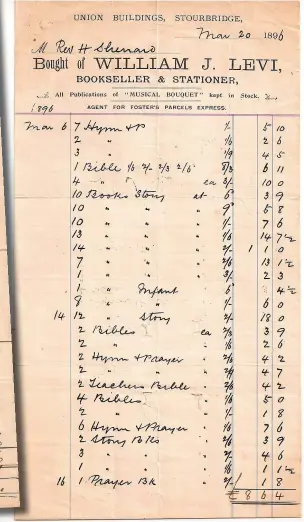 UNION BUILDINGS, STOURBRIDGE,
Mar 20 1896
M Rev H
Bought of WILLIAM J. LEVI,
BOOKSELLER & STATIONER,
All Publications of "MUSICAL BOUQUET" kept in Stock.
1896 AGENT FOR FOSTER'S PARCELS EXPRESS.
Mar 6 7 Hymn & P 1/- 5 10
2 " 1/6 2 6
3 " 1/9 4 5
1 Bible 2/- 2/3 2/6 6 11
4 " ea 10 0
10 Books Story at 6 3 9
10 " " " 9 5 8
10 " " " 1/- 7 6
13 " " " 1/6 14 7½
14 " " " 2/- 1 1 0
7 " " " 2/6 13 1½
1 " " " 3/- 2 3
1 " Infant " 6 4½
8 " " 1/- 6 0
14 12 " Story " 2/- 18 0
2 Bibles ea 3 9
2 " " 1/6 2 6
2 Hymn & Prayer " 2/6 4 2
2 " " " 4 7
2 Teachers Bible " 2/6 4 2
4 Bibles " 1/6 5 0
2 " " 1/- 1 8
6 Hymn & Prayer " 1/6 7 6
2 Story Bks " 2/6 3 9
3 " " " 2/- 4 6
1 " " " 1/6 1 1½
16 1 Prayer Bk 2/- 1 8
£ 8 6 4